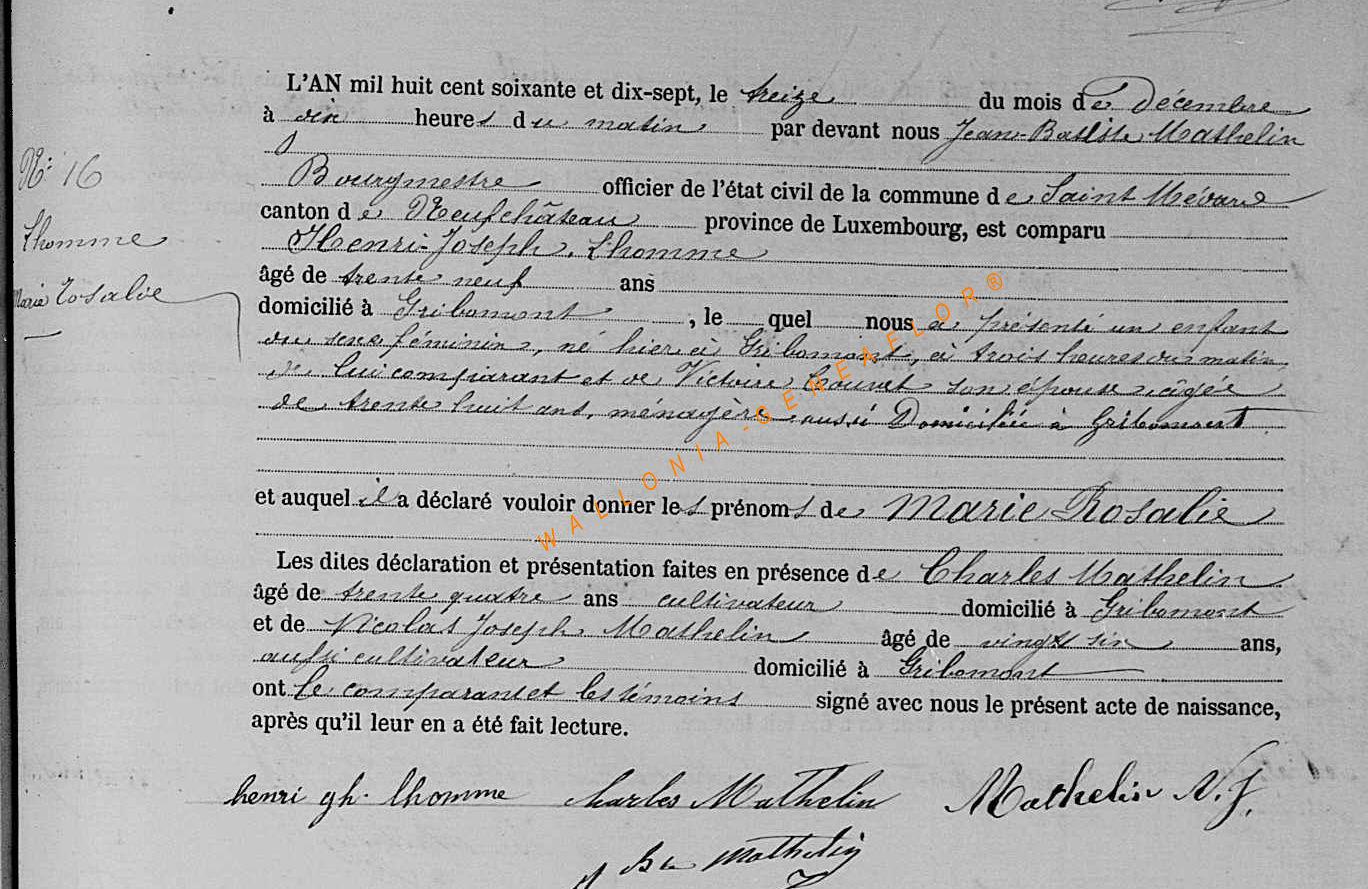 L'AN mil huit cent soixante et dix-sept, le treize du mois de Décembre
à dix heures du matin par devant nous Jean-Batiste Mathelin
Bourgmestre officier de l'état civil de la commune de Saint Médard
canton de Neufchâteau province de Luxembourg, est comparu
Henri-Joseph, Lhomme
âgé de trente neuf ans
domicilié à Gribomont, le quel nous a présenté un enfant
du sexe féminin, né hier à Gribomont, à trois heures du matin,
de lui comparant et de Victoire son épouse, âgée
de trente huit ans, ménagère aussi Domiciliée à Gribomont
et auquel il a déclaré vouloir donner les prénoms de Marie Rosalie
Les dites déclaration et présentation faites en présence de Charles Mathelin
âgé de trente quatre ans cultivateur domicilié à Gribomont
et de Nicolas Joseph Mathelin âgé de vingt six ans,
aussi cultivateur domicilié à Gribomont
ont Le comparant et les témoins signé avec nous le présent acte de naissance,
après qu'il leur en a été fait lecture.
henri gh. lhomme Charles Mathelin Mathelin N. J.
Mathelin
N: 16
Lhomme
Marie Rosalie
WALLONIA-GENEAFLOR®